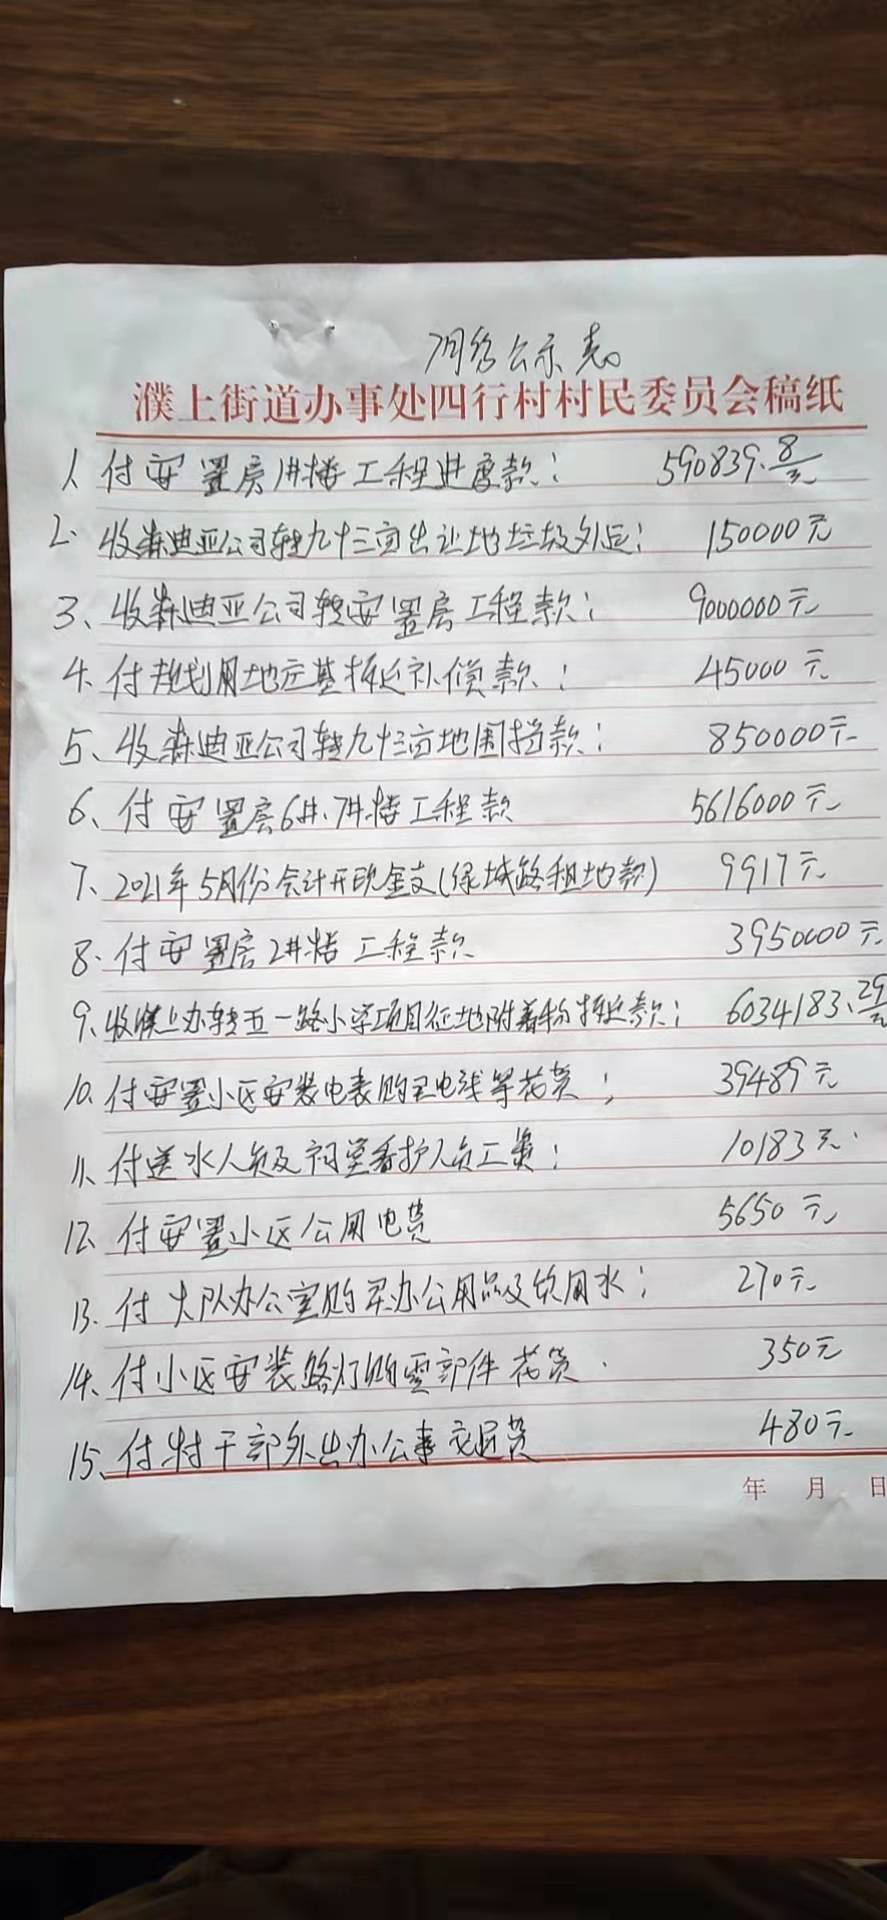 7月份公示表
濮上街道办事处四行村村民委员会稿纸
1、付安置房1#楼工程进度款: 590839.8元
2、收森迪亚公司转九十三亩出让地垃圾外运: 150000元
3、收森迪亚公司转安置房工程款: 9000000元
4、付规划用地庄基拆迁补偿款: 45000元
5、收森迪亚公司转九十三亩地围挡款: 850000元
6、付安置房6#、7#楼工程款 5616000元
7、2021年5月份会计开现金支(绿城路租地款) 9917元
8、付安置房2#楼工程款 3950000元
9、收濮上办转五一路小学项目征地附着物拆迁款: 6034183.29元
10、付安置小区安装电表购买电线等花费; 39489元
11、付送水人员及祠堂看护人员工资: 10183元
12、付安置小区公用电费 5650元
13、付大队办公室购买办公用品及饮用水; 270元
14、付小区安装路灯购零部件花费. 350元
15、付村干部外出办公事交通费 480元
年 月 日